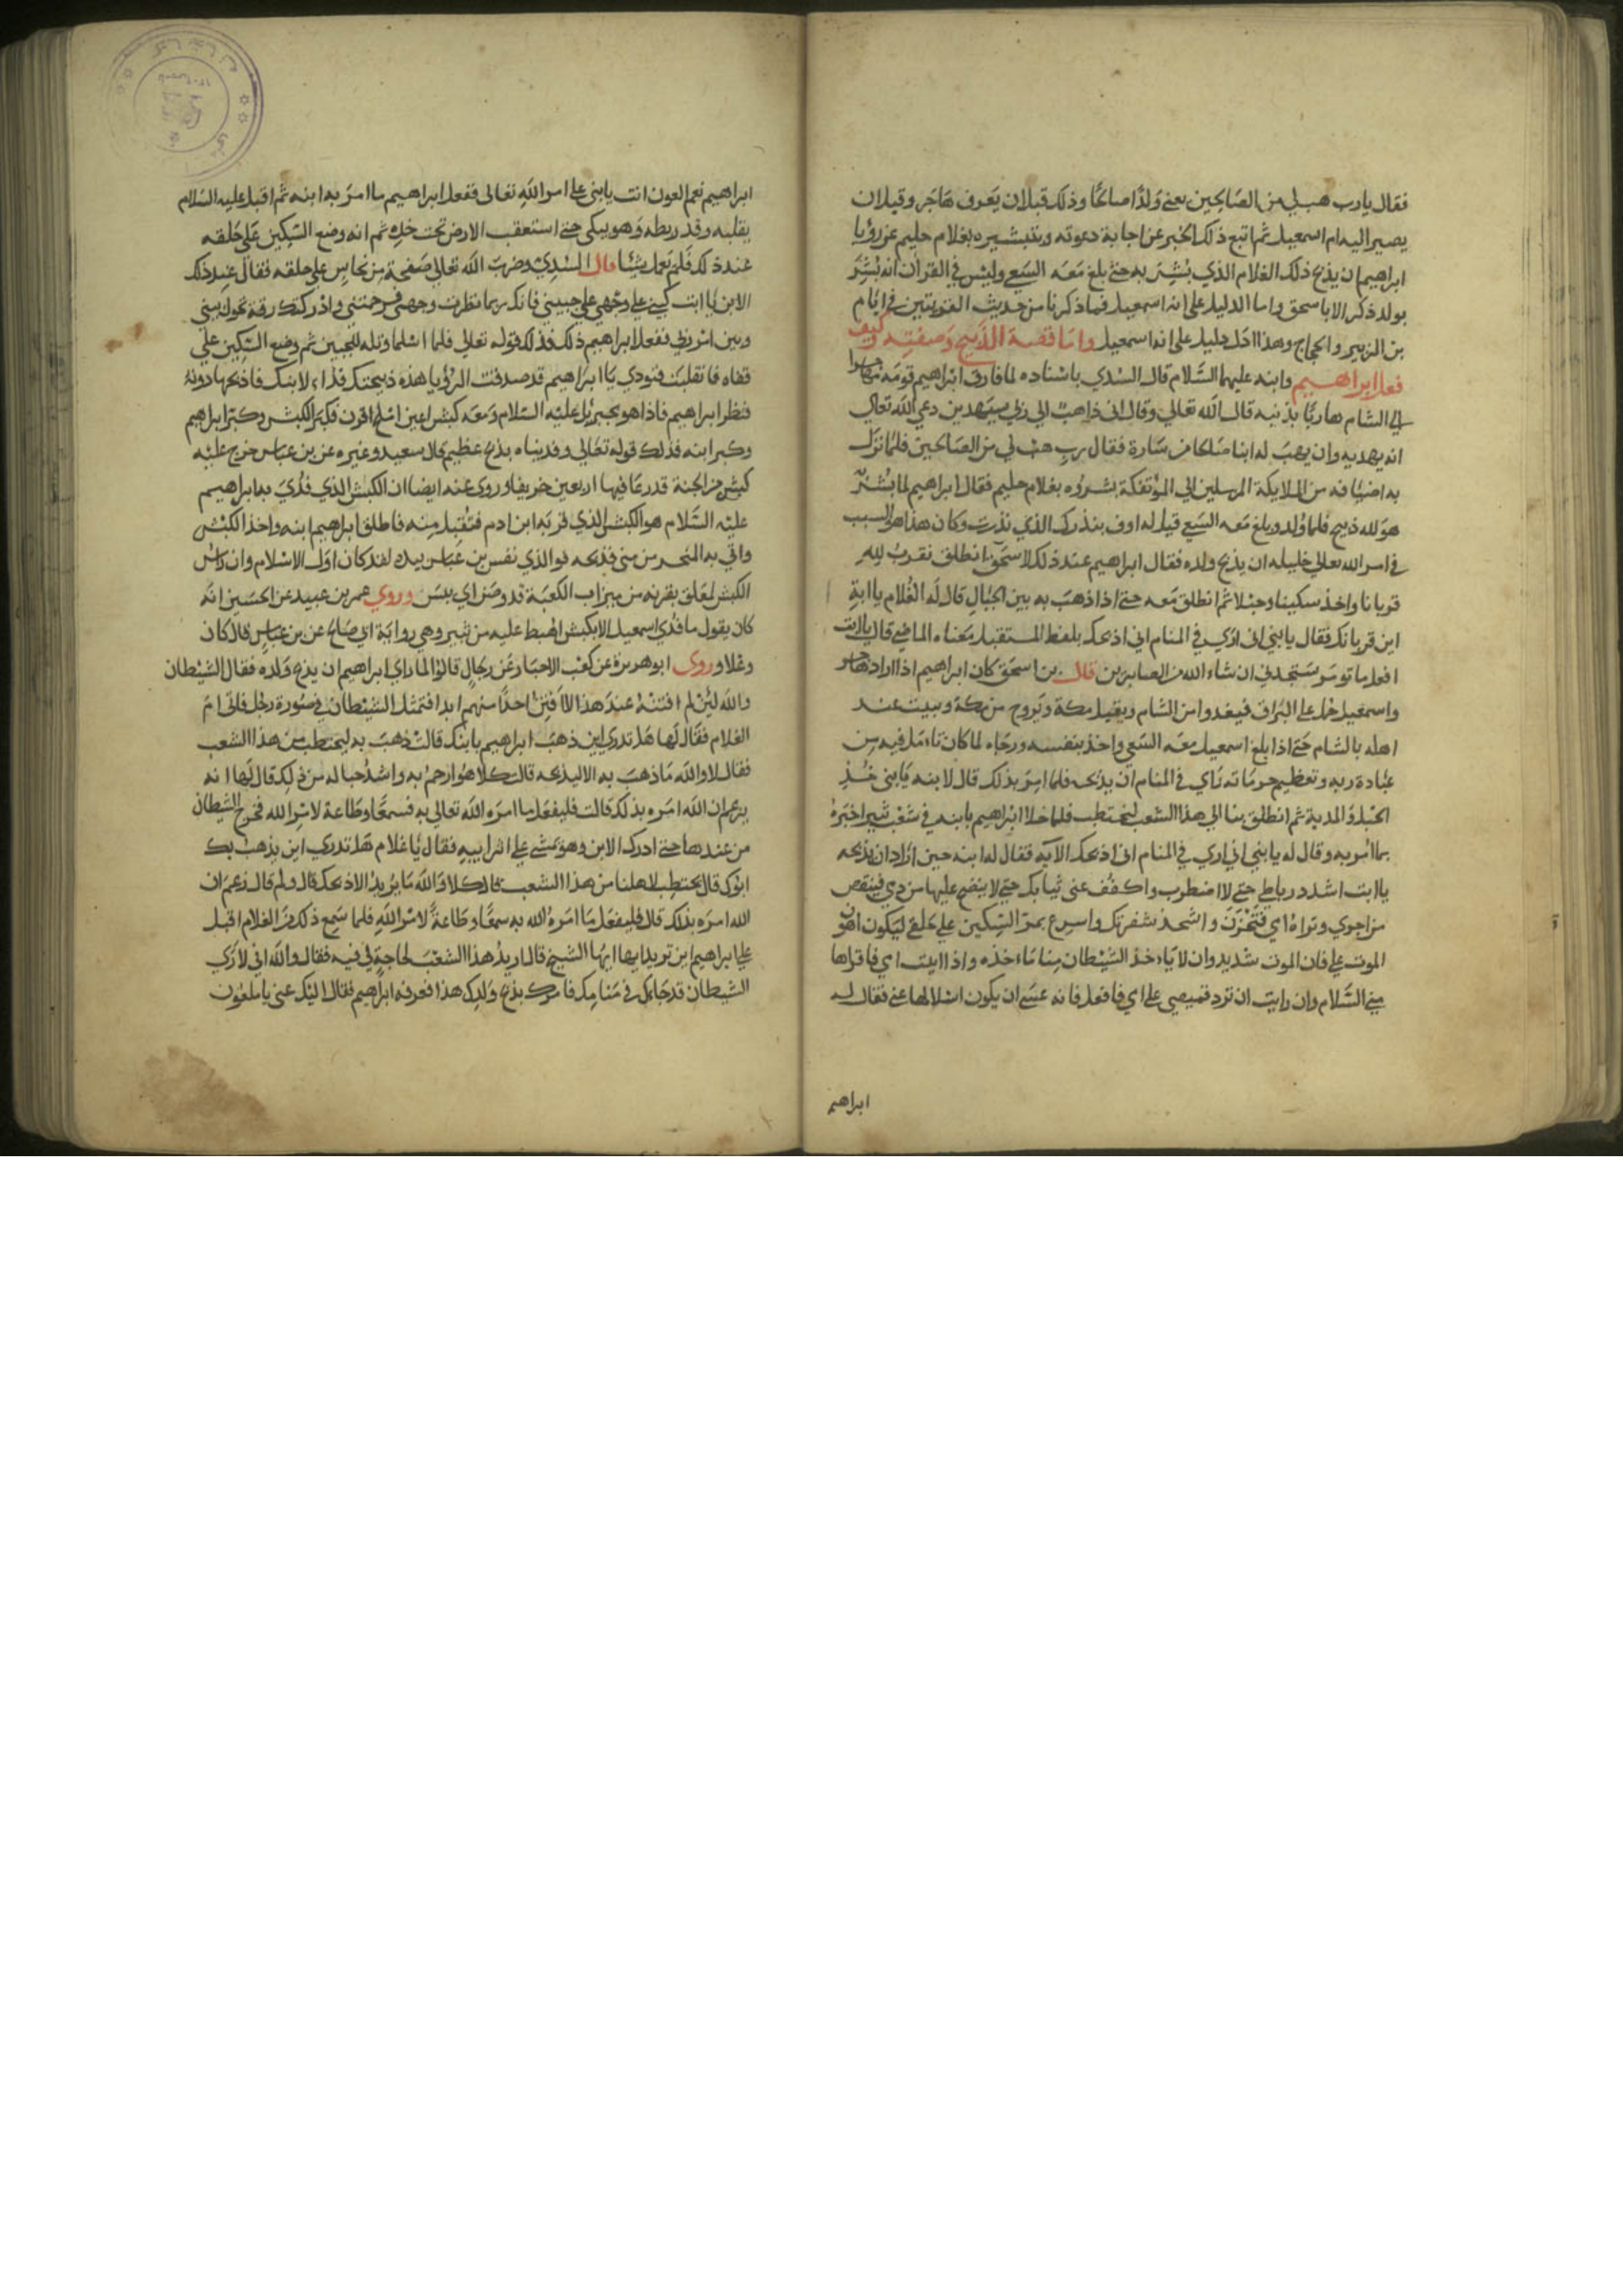 فقال يارب هب لي من الصالحين يعني ولدا صالحا وذلك قبل ان يعرف هاجر وقبل ان
يصير اليه ام اسمعيل ثم اتبع ذلك الخبر عن اجابة دعوته وبتبشيره بغلام حليم عن رؤيا
ابراهيم ان يذبح ذلك الغلام الذي بشر به حتى بلغ معه السعي وليس في القران انه بشر
بولد ذكر الا باسحق واما الدليل على انه اسمعيل فما ذكرنا من حديث القرنين في ايام
بن الزبير والحجاج وهذا ادل دليل على انه اسمعيل واما قصة الذبيح وصفته وكيف
فعل ابراهيم وابنه عليهما السلام قال السدي باسناده لما فارق ابراهيم قومه مهاجرا
الى الشام هاربا بدينه قال الله تعالى وقال اني ذاهب الى ربي سيهدين دعى الله تعالى
انه يهديه وان يهب له ابنا صالحا من سارة فقال رب هب لي من الصالحين فلما نزل
به اضيافه من الملايكة المرسلين الى المؤتفكة بشروه بغلام حليم فقال ابراهيم لما بشر
هو لله ذبيح فلما ولد وبلغ معه السعي قيل له اوف بنذرك الذي نذرت وكان هذا هو السبب
في امر الله تعالى خليله ان يذبح ولده فقال ابراهيم عند ذلك لاسحق انطلق نقرب لله
قربانا واخذ سكينا وحبلا ثم انطلق معه حتى اذا ذهب به بين الجبال قال له الغلام يا ابة
اين قربانك فقال يا بني اني ارى في المنام اني اذبحك بلفظ المستقبل معناه الماضي قال يا ابت
افعل ما تومر ستجدني ان شاء الله من الصابرين قال بن اسحق كان ابراهيم اذا اراد هاجر
واسمعيل حمل على البراق فيغدوا من الشام ويقيل بمكة ويروح من مكة ويبيت عند
اهله بالشام حتى اذا بلغ اسمعيل معه السعي واخذ بنفسه ورجاه لما كان تامل فيه من
عبادة ربه وتعظيم حرماته راى في المنام ان يذبحه فلما امر بذلك قال لابنه يا بني خذ
الحبل والمدية ثم انطلق بنا الى هذا الشعب لنحتطب فلما خلا ابراهيم بابنه في شعب ثبير اخبره
بما امر به وقال له يا بني اني ارى في المنام اني اذبحك الآية فقال له ابنه حين اراد ان يذبحه
يا ابت اشدد رباطي حتى لا اضطرب واكفف عني ثيابك حتى لا ينضح عليها من دمي فينقص
من اجري وتراه امي فتحزن واشحذ شفرتك واسرع بمر السكين على حلقي ليكون اهون
الموت علي فان الموت شديد وان لا ياخذ الشيطان منا ماخذه واذا اتيت امي فاقراها
مني السلام وان رايت ان ترد قميصي على امي فافعل فانه عسى ان يكون اسلا لها عني فقال له
ابراهيم
ابراهيم نعم العون انت يا بني على امر الله تعالى ففعل ابراهيم ما امر به ابنه ثم اقبل عليه السلام
يقلبه وقد ربطه وهو يبكي حتى استعقب الارض تحت خده ثم انه وضع السكين على حلقه
عند ذلك فلم تعمل شيئا قال السدي وضرب الله تعالى صفحة من نحاس على حلقه فقال عند ذلك
الابن يا ابت كبني على وجهي على جبيني فانك ربما نظرت وجهي فرحمتني وادركتك رقة تحول بيني
وبين امر ربي ففعل ابراهيم ذلك فذلك قوله تعالى فلما اسلما وتله للجبين ثم وضع السكين على
قفاه فانقلبت فنودي يا ابراهيم قد صدقت الرؤيا هذه ذبيحتك فداء لابنك فاذبحها دونه
فنظر ابراهيم فاذا هو بجبرئيل عليه السلام ومعه كبش اعين املح اقرن فكبر الكبش وكبر ابراهيم
وكبر ابنه فذلك قوله تعالى وفديناه بذبح عظيم قال سعيد وغيره عن بن عباس خرج عليه
كبش من الجنة قد رعا فيها اربعين خريفا وروى عنه ايضا ان الكبش الذي فدي به ابراهيم
عليه السلام هو الكبش الذي قربه ابن ادم فتقبل منه فاطلق ابراهيم ابنه واخذ الكبش
واتى به المنحر من منى فذبحه فوالذي نفس بن عباس بيده لقد كان اول الاسلام وان راس
الكبش لمعلق بقرنه من ميزاب الكعبة قد وضر اي يبس وروي عمر بن عبيد عن الحسين انه
كان يقول ما فدي اسمعيل الا بكبش اهبط عليه من ثبير وهي رواية ابي صالح عن بن عباس قال كان
وعلا وروى ابو هريرة عن كعب الاحبار وعن رجال قالوا لما راى ابراهيم ان يذبح ولده فقال الشيطان
والله لئن لم افتنه عند هذا الا افتن احدا منهم ابدا فتمثل الشيطان في صورة رجل فاتى ام
الغلام فقال لها هل تدري اين ذهب ابراهيم بابنك قالت ذهب به ليحتطب من هذا الشعب
فقال لا والله ما ذهب به الا ليذبحه قالت كلا هو ارحم به واشد حبا له من ذلك قال لها انه
يزعم ان الله امره بذلك قالت فليفعل ما امره الله تعالى به فسمعا وطاعة لامر الله فخرج الشيطان
من عندها حتى ادرك الابن وهو يمشي على اثر ابيه فقال يا غلام هل تدري اين يذهب بك
ابوك قال يحتطب لاهلنا من هذا الشعب قال كلا والله ما يريد الا ذبحك قال ولم قال زعم ان
الله امره بذلك قال فليفعل ما امره الله به سمعا وطاعة لامر الله فلما سمع ذلك من الغلام اقبل
على ابراهيم اين تريد ايها ايها الشيخ قال اريد هذا الشعب لحاجة لي فيه فقال والله اني لارى
الشيطان قد جاءك في منامك فامرك بذبح ولدك هذا فعرفه ابراهيم فقال اليك عني يا ملعون